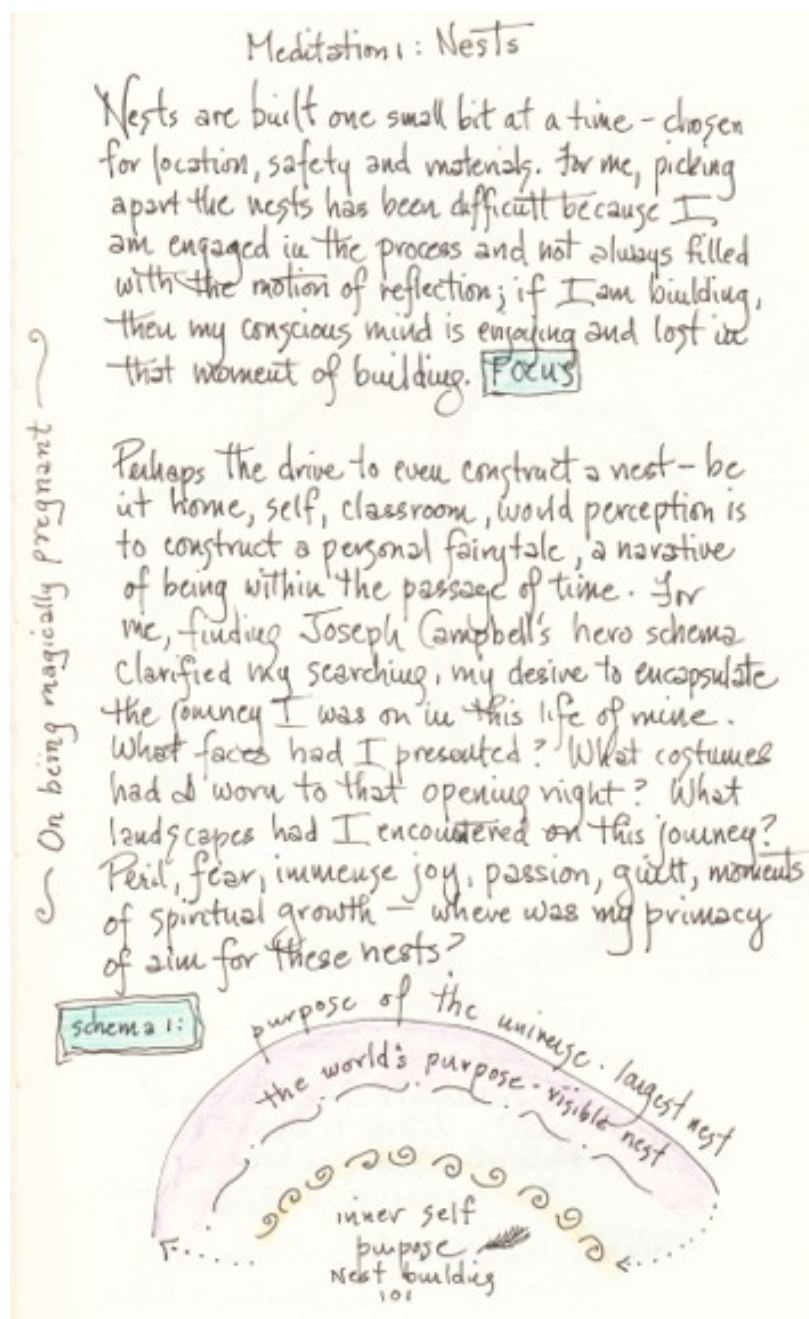 Meditation 1: Nests
Nests are built one small bit at a time - chosen
for location, safety and materials. For me, picking
apart the nests has been difficult because I
am engaged in the process and not always filled
with the motion of reflection; if I am building,
then my conscious mind is enjoying and lost in
that moment of building. FOCUS
On being magically pregnant
Perhaps the drive to even construct a nest - be
it home, self, classroom, world perception is
to construct a personal fairytale, a narative
of being within the passage of time. For
me, finding Joseph Campbell's hero schema
clarified my searching, my desire to encapsulate
the journey I was on in this life of mine.
What faces had I presented? What costumes
had I worn to that opening night? What
landscapes had I encountered on this journey?
Peril, fear, immense joy, passion, guilt, moments
of spiritual growth — where was my primacy
of aim for these nests?
schema 1:
purpose of the universe · largest nest
the world's purpose · visible nest
inner self
purpose
Nest building
101